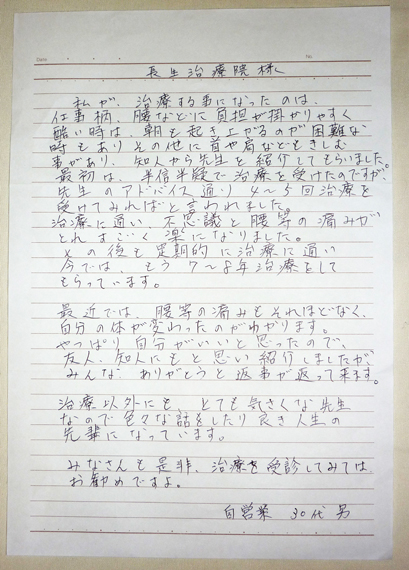 Date
No.
長生治療院 様
私が、治療する事になったのは、
仕事柄、腰などに負担が掛かりやすく
酷い時は、朝も起き上がるのが困難な
時もありその他に首や肩などもきしむ
事があり、知人から先生を紹介してもらいました。
最初は、半信半疑で治療を受けたのですが、
先生のアドバイス通り 4〜5回治療を
受けてみればと言われました。
治療に通い、不思議と腰等の痛みが
とれすごく楽になりました。
その後も定期的に治療に通い
今では、もう 7〜8年治療をして
もらっています。
最近では、腰等の痛みもそれほどなく、
自分の体が変わったのがわかります。
やっぱり自分がいいと思ったので、
友人、知人にもと思い紹介しましたが、
みんな ありがとうと返事が返って来ます。
治療以外にも、とても気さくな先生
なので色々な話をしたり良き人生の
先輩になっています。
みなさんも是非、治療を受診してみては
お勧めですよ。
自営業 30代 男